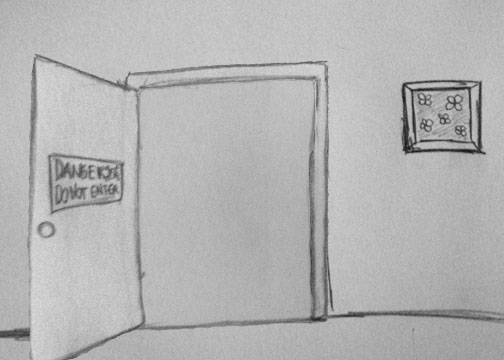 DANGEROUS
DO NOT ENTER